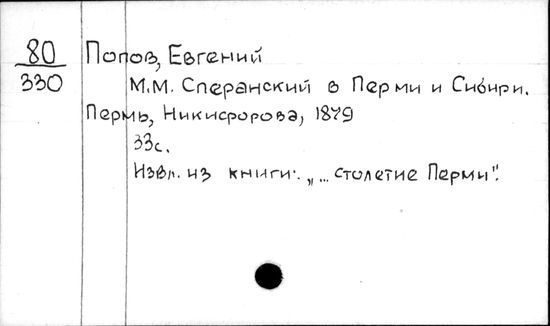 80
330
Попов, Евгений
М.М. Сперанский в Перми и Сибири.
Пермь, Никифорова, 1879
33с.
Извл. из книги: „... столетие Перми".